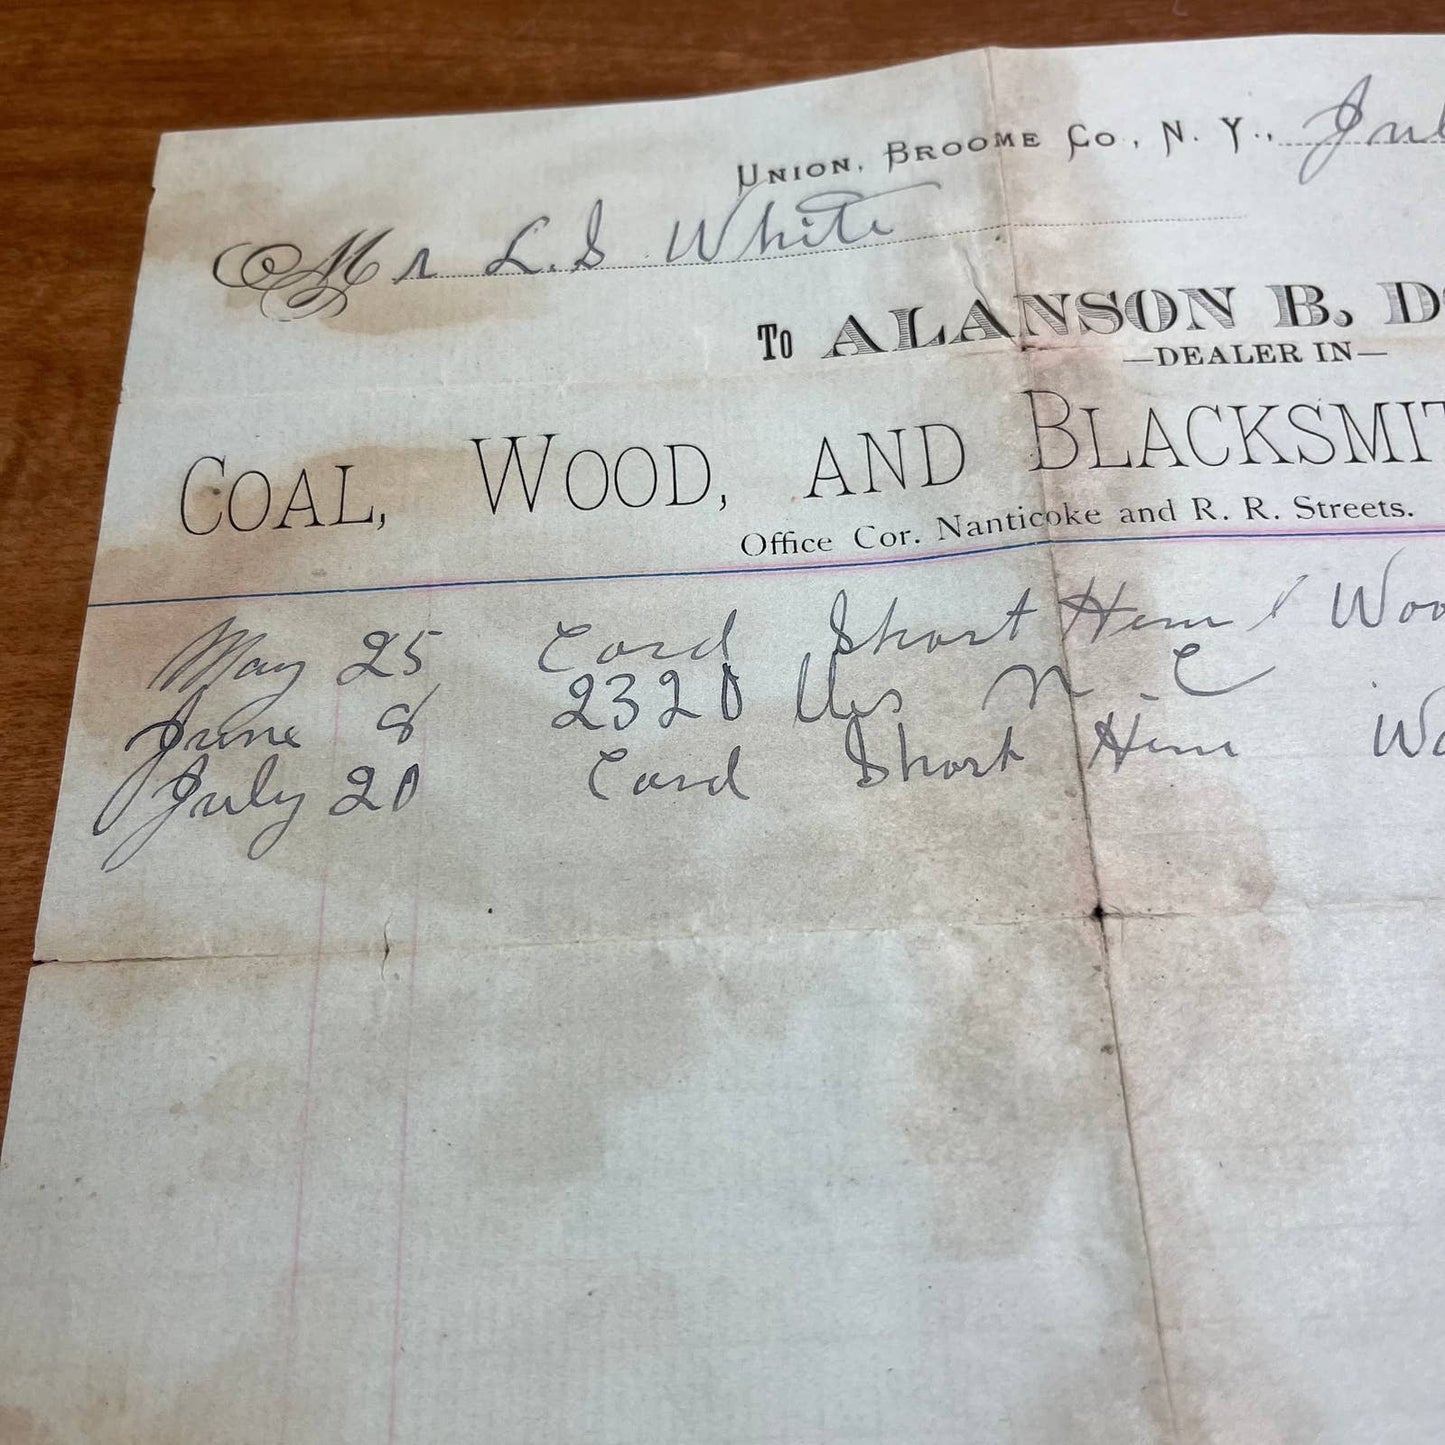 UNION, BROOME CO., N. Y., Jul
Mr L. S White
TO ALANSON B. D
—DEALER IN—
COAL, WOOD, AND BLACKSMIT
Office Cor. Nanticoke and R. R. Streets.
May 25 Cord Short Hem Woo
June 8 2320 lbs N. C
July 20 Cord Short Hem Wo